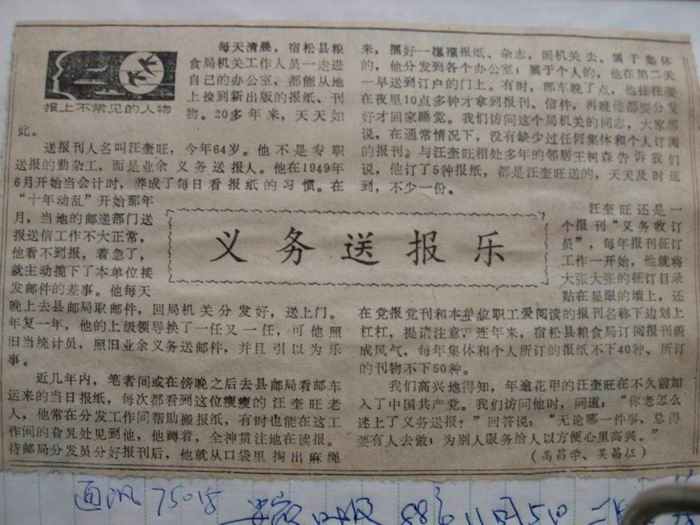 报上不常见的人物
每天清晨，宿松县粮
食局机关工作人员一走进
自己的办公室，都能从地
上捡到新出版的报纸、刊
物。20多年来，天天如
此。
送报刊人名叫汪奎旺，今年64岁。他不是专职
送报的勤杂工，而是业余义务送报人。他在1949年
6月开始当会计时，养成了每日看报纸的习惯。在
“十年动乱”开始那年
月，当地的邮递部门送
报送信工作不大正常，
他看不到报，着急了，
就主动揽下了本单位接
发邮件的差事。他每天
晚上去县邮局取邮件，回局机关分发好，送上门。
年复一年，他的上级领导换了一任又一任，可他照
旧当统计员，照旧业余义务送邮件，并且引以为乐
事。
近几年内，笔者间或在傍晚之后去县邮局看邮车
运来的当日报纸，每次都看到这位瘦瘦的汪奎旺老
人，他常在分发工作间帮助搬报纸，有时也能在这工
作间的旮旯处见到他，他蹲着，全神贯注地在读报。
待邮局分发员分好报刊后，他就从口袋里掏出麻绳
来，捆好一摞摞报纸、杂志，回机关去。属于集体
的，他分发到各个办公室；属于个人的，他在第二天
一早送到订户的门上。有时，邮车晚了点，他往往要
在夜里10点多钟才拿到报刊、信件，再晚他都要分发
好才回家睡觉。我们访问这个局机关的同志，大家都
说，在通常情况下，没有缺少过任何集体和个人订阅
的报刊。与汪奎旺相处多年的邻居王树森告诉我们
说，他订了5种报纸，都是汪奎旺送的，天天及时送
到，不少一份。
义务送报乐
汪奎旺还是一
个报刊“义务收订
员”，每年报刊征订
工作一开始，他就将
大张大张的征订目录
贴在显眼的墙上，还
在党报党刊和本单位职工爱阅读的报刊名称下边划上
杠杠，提请注意。近年来，宿松县粮食局订阅报刊蔚
成风气，每年集体和个人所订的报纸不下40种、所订
的刊物不下50种。
我们高兴地得知，年逾花甲的汪奎旺在不久前加
入了中国共产党。我们访问他时，问道：“你老怎么
迷上了义务送报？”回答说：“无论哪一件事，总得
要有人去做；为别人服务给人以方便心里高兴。”
75018
日报 88年11月5日